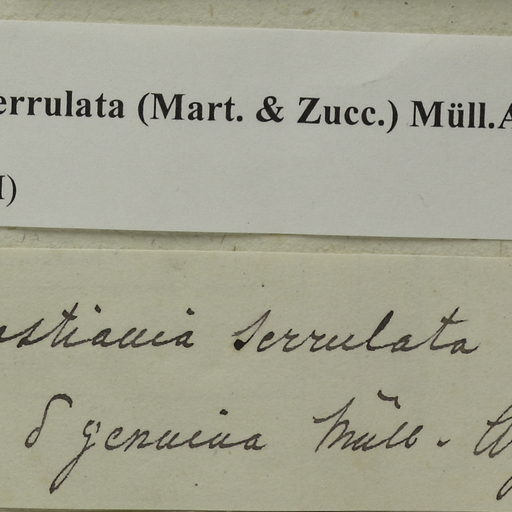 errulata (Mart. & Zucc.) Müll.A
I)
astiania serrulata
δ genuina Müll. Ag